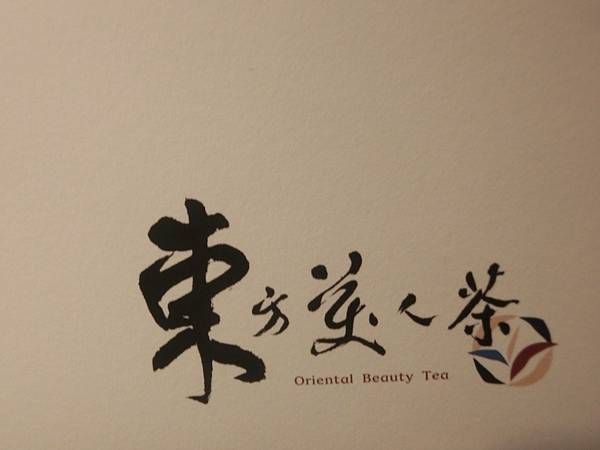 東方美人茶
Oriental Beauty Tea